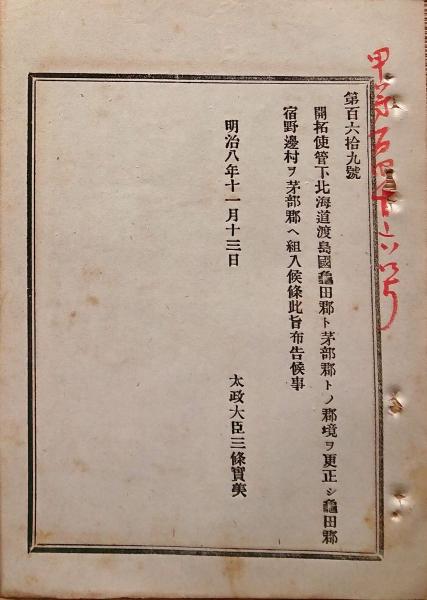 甲第百四十八号
第百六拾九號
開拓使管下北海道渡島國龜田郡ト茅部郡トノ郡境ヲ更正シ龜田郡
宿野邊村ヲ茅部郡ヘ組入候條此旨布告候事
明治八年十一月十三日
太政大臣三條實美